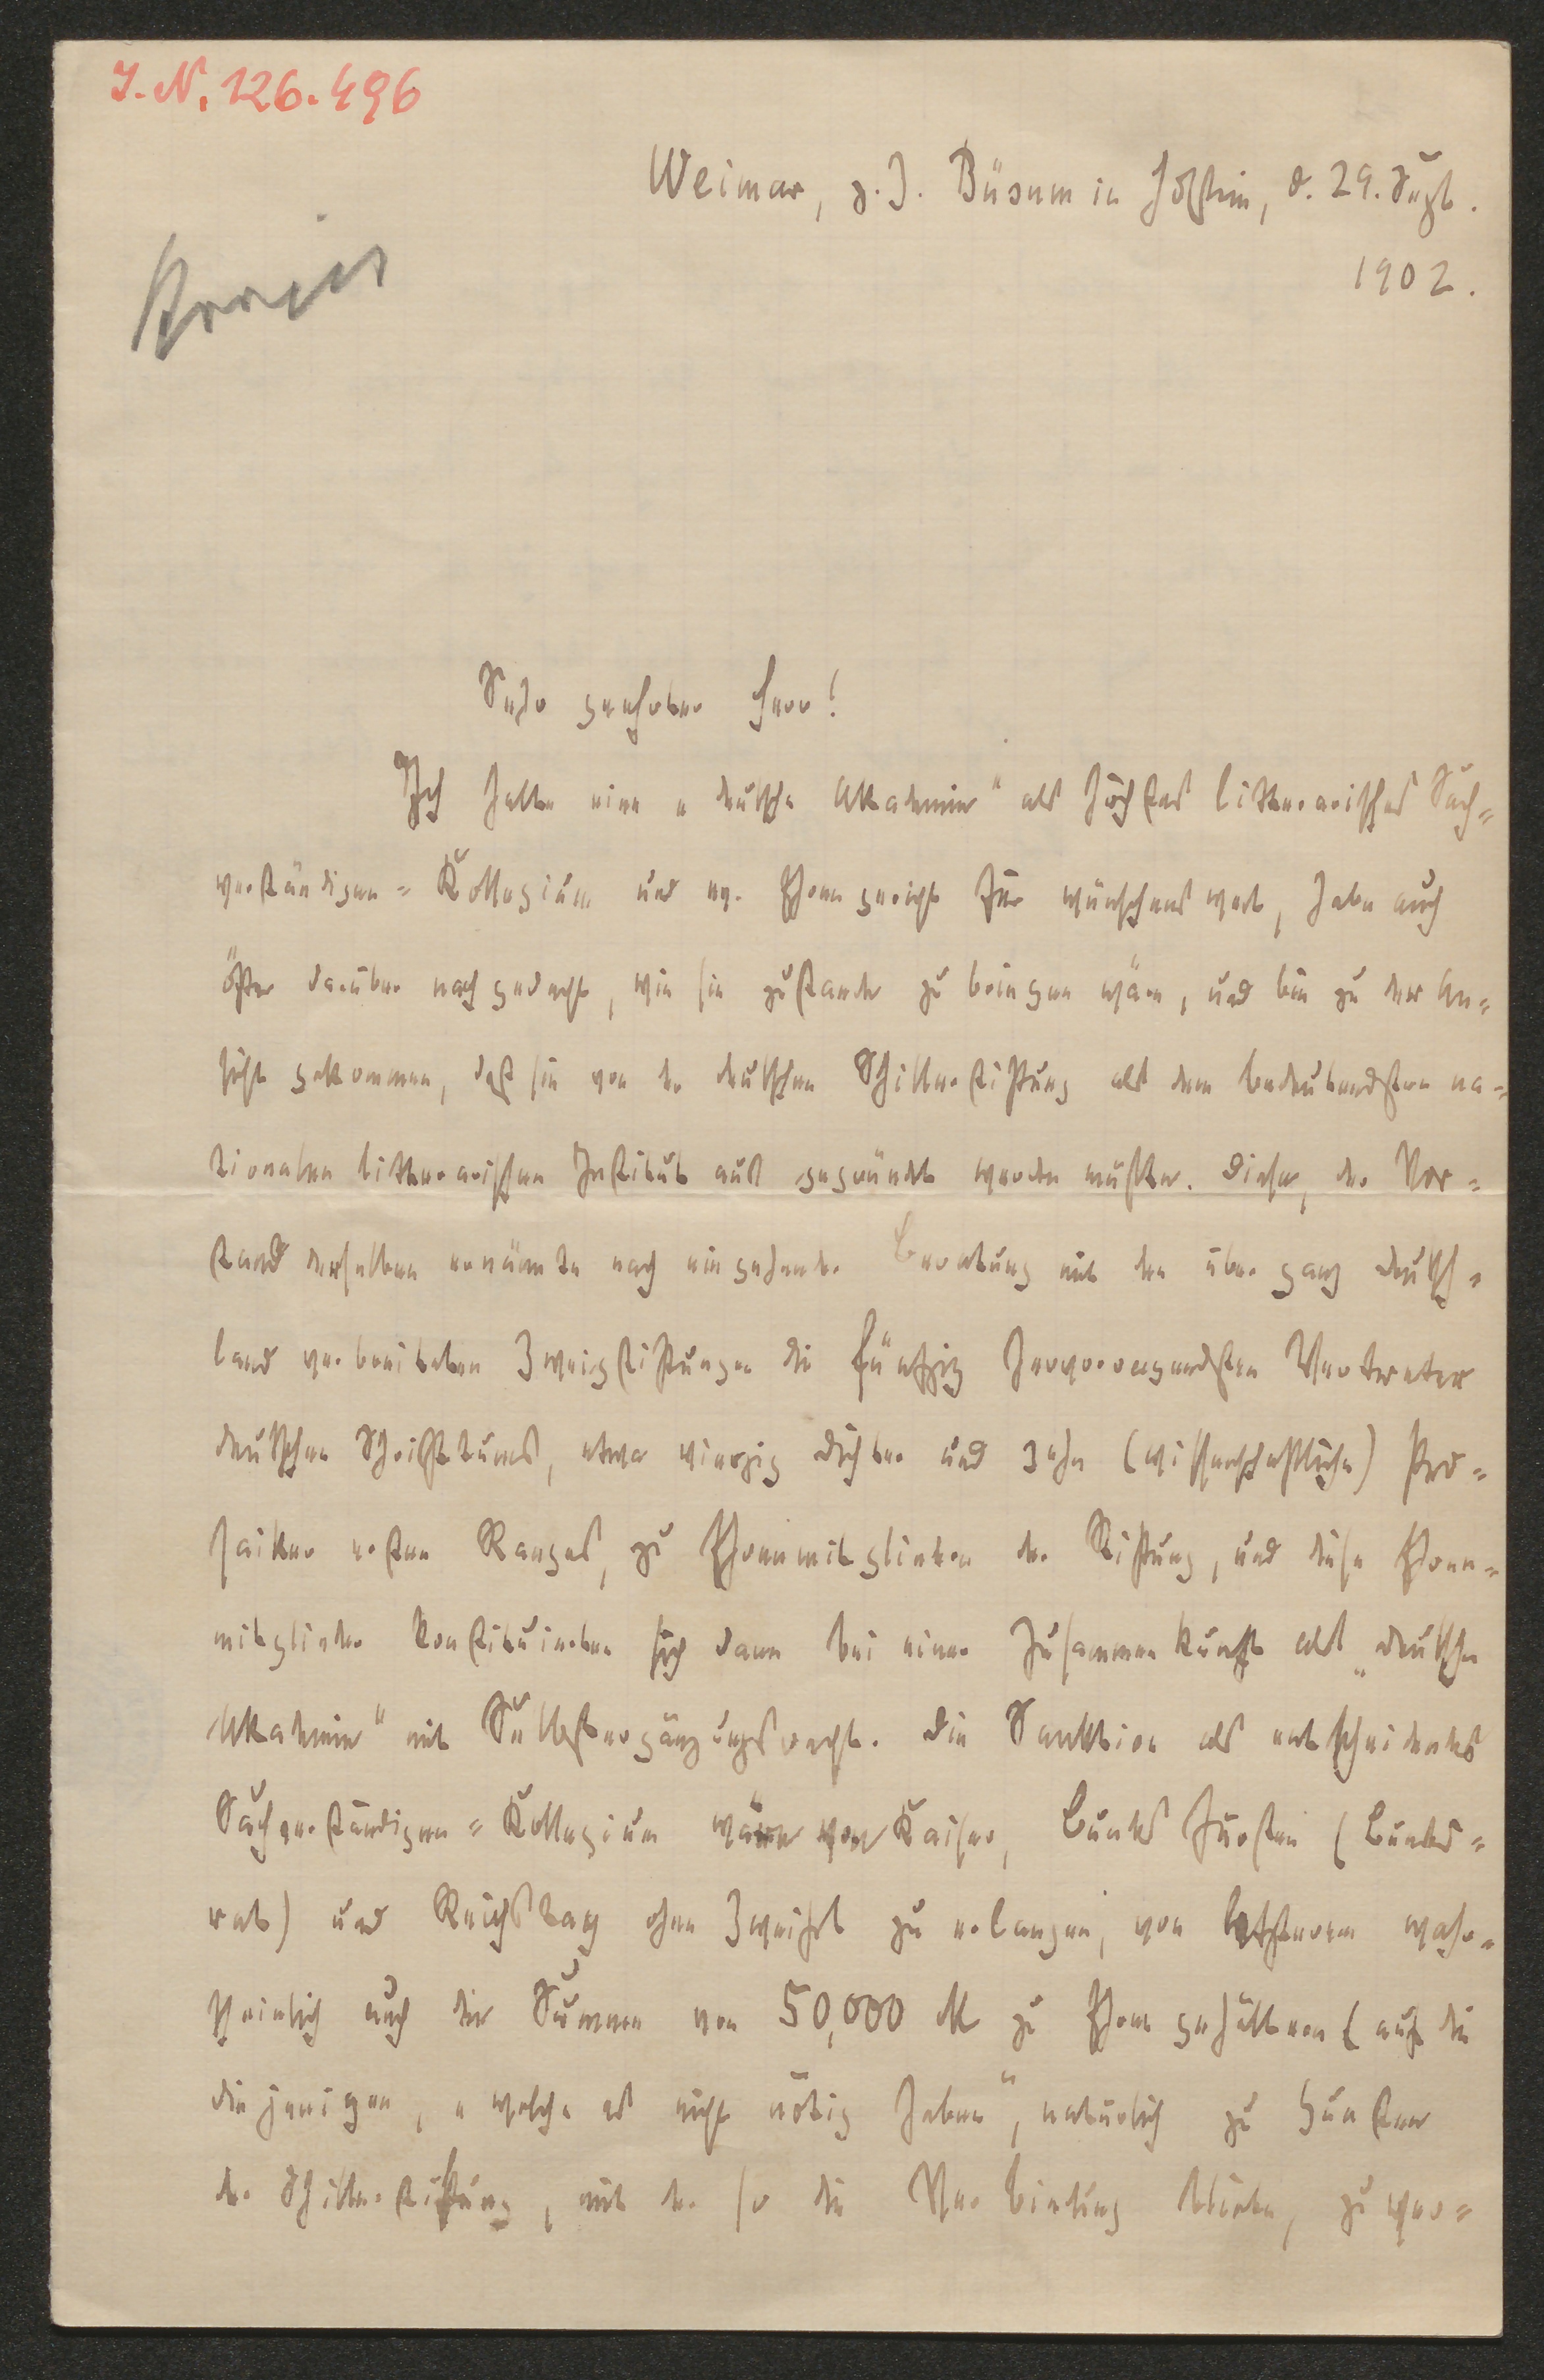 I. N. 126.496
Weimar, z. Z. Büsum in Holstein, d. 29. Sept.
1902.
Sehr geehrter Herr!
Ich halte eine „deutsche Akademie“ als höchstes litterarisches Sach=
verständigen=Kollegium und ev. Ehrengericht für wünschenswert, habe auch
öfter darüber nachgedacht, wie sie zustande zu bringen wäre, und bin zu der An=
sicht gekommen, daß sie von der deutschen Schillerstiftung als dem bedeutendsten na=
tionalen litterarischen Institut aus gegründet werden müßte. Diese, der Vor=
stand derselben ernännte nach eingehender Beratung mit den über ganz Deutsch=
land verbreiteten Zweigstiftungen die fünfzig hervorragendsten Vertreter
deutschen Schrifttums, etwa vierzig Dichter und zehn (wissenschaftliche) Pro=
saiker ersten Ranges, zu Ehrenmitgliedern der Stiftung, und diese Ehren=
mitglieder konstituierten sich dann bei einer Zusammenkunft als „deutsche
Akademie“ mit Selbstergänzungsrecht. Die Sanktion als entscheidendes
Sachverständigen=Kollegium wäre von Kaiser, Bundesfürsten (Bundes=
rat) und Reichstag ohne Zweifel zu erlangen, von letzterem wahr=
scheinlich auch die Summe von 50,000 M zu Ehrengehältern (auf die
diejenigen, „welche es nicht nötig haben“, natürlich zu Gunsten
der Schillerstiftung, mit der so die Verbindung bliebe, zu ver=